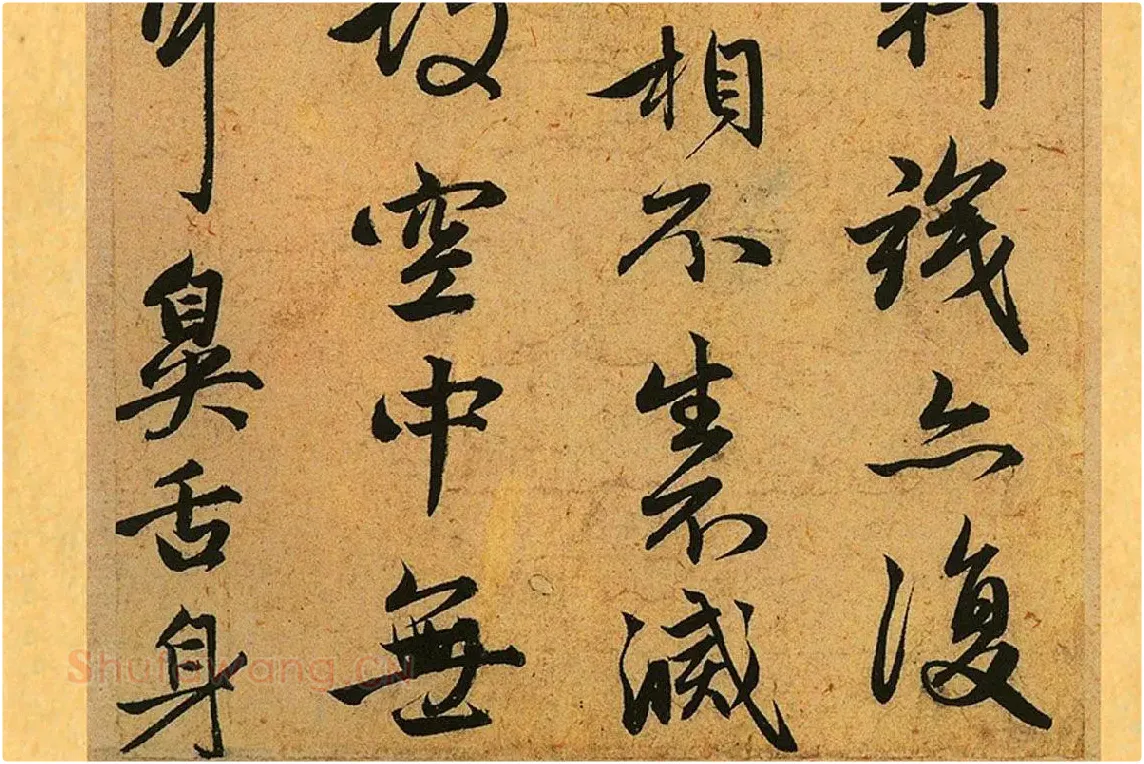 行識亦復
相不生不滅
故空中無
耳鼻舌身
Shufawang.CN